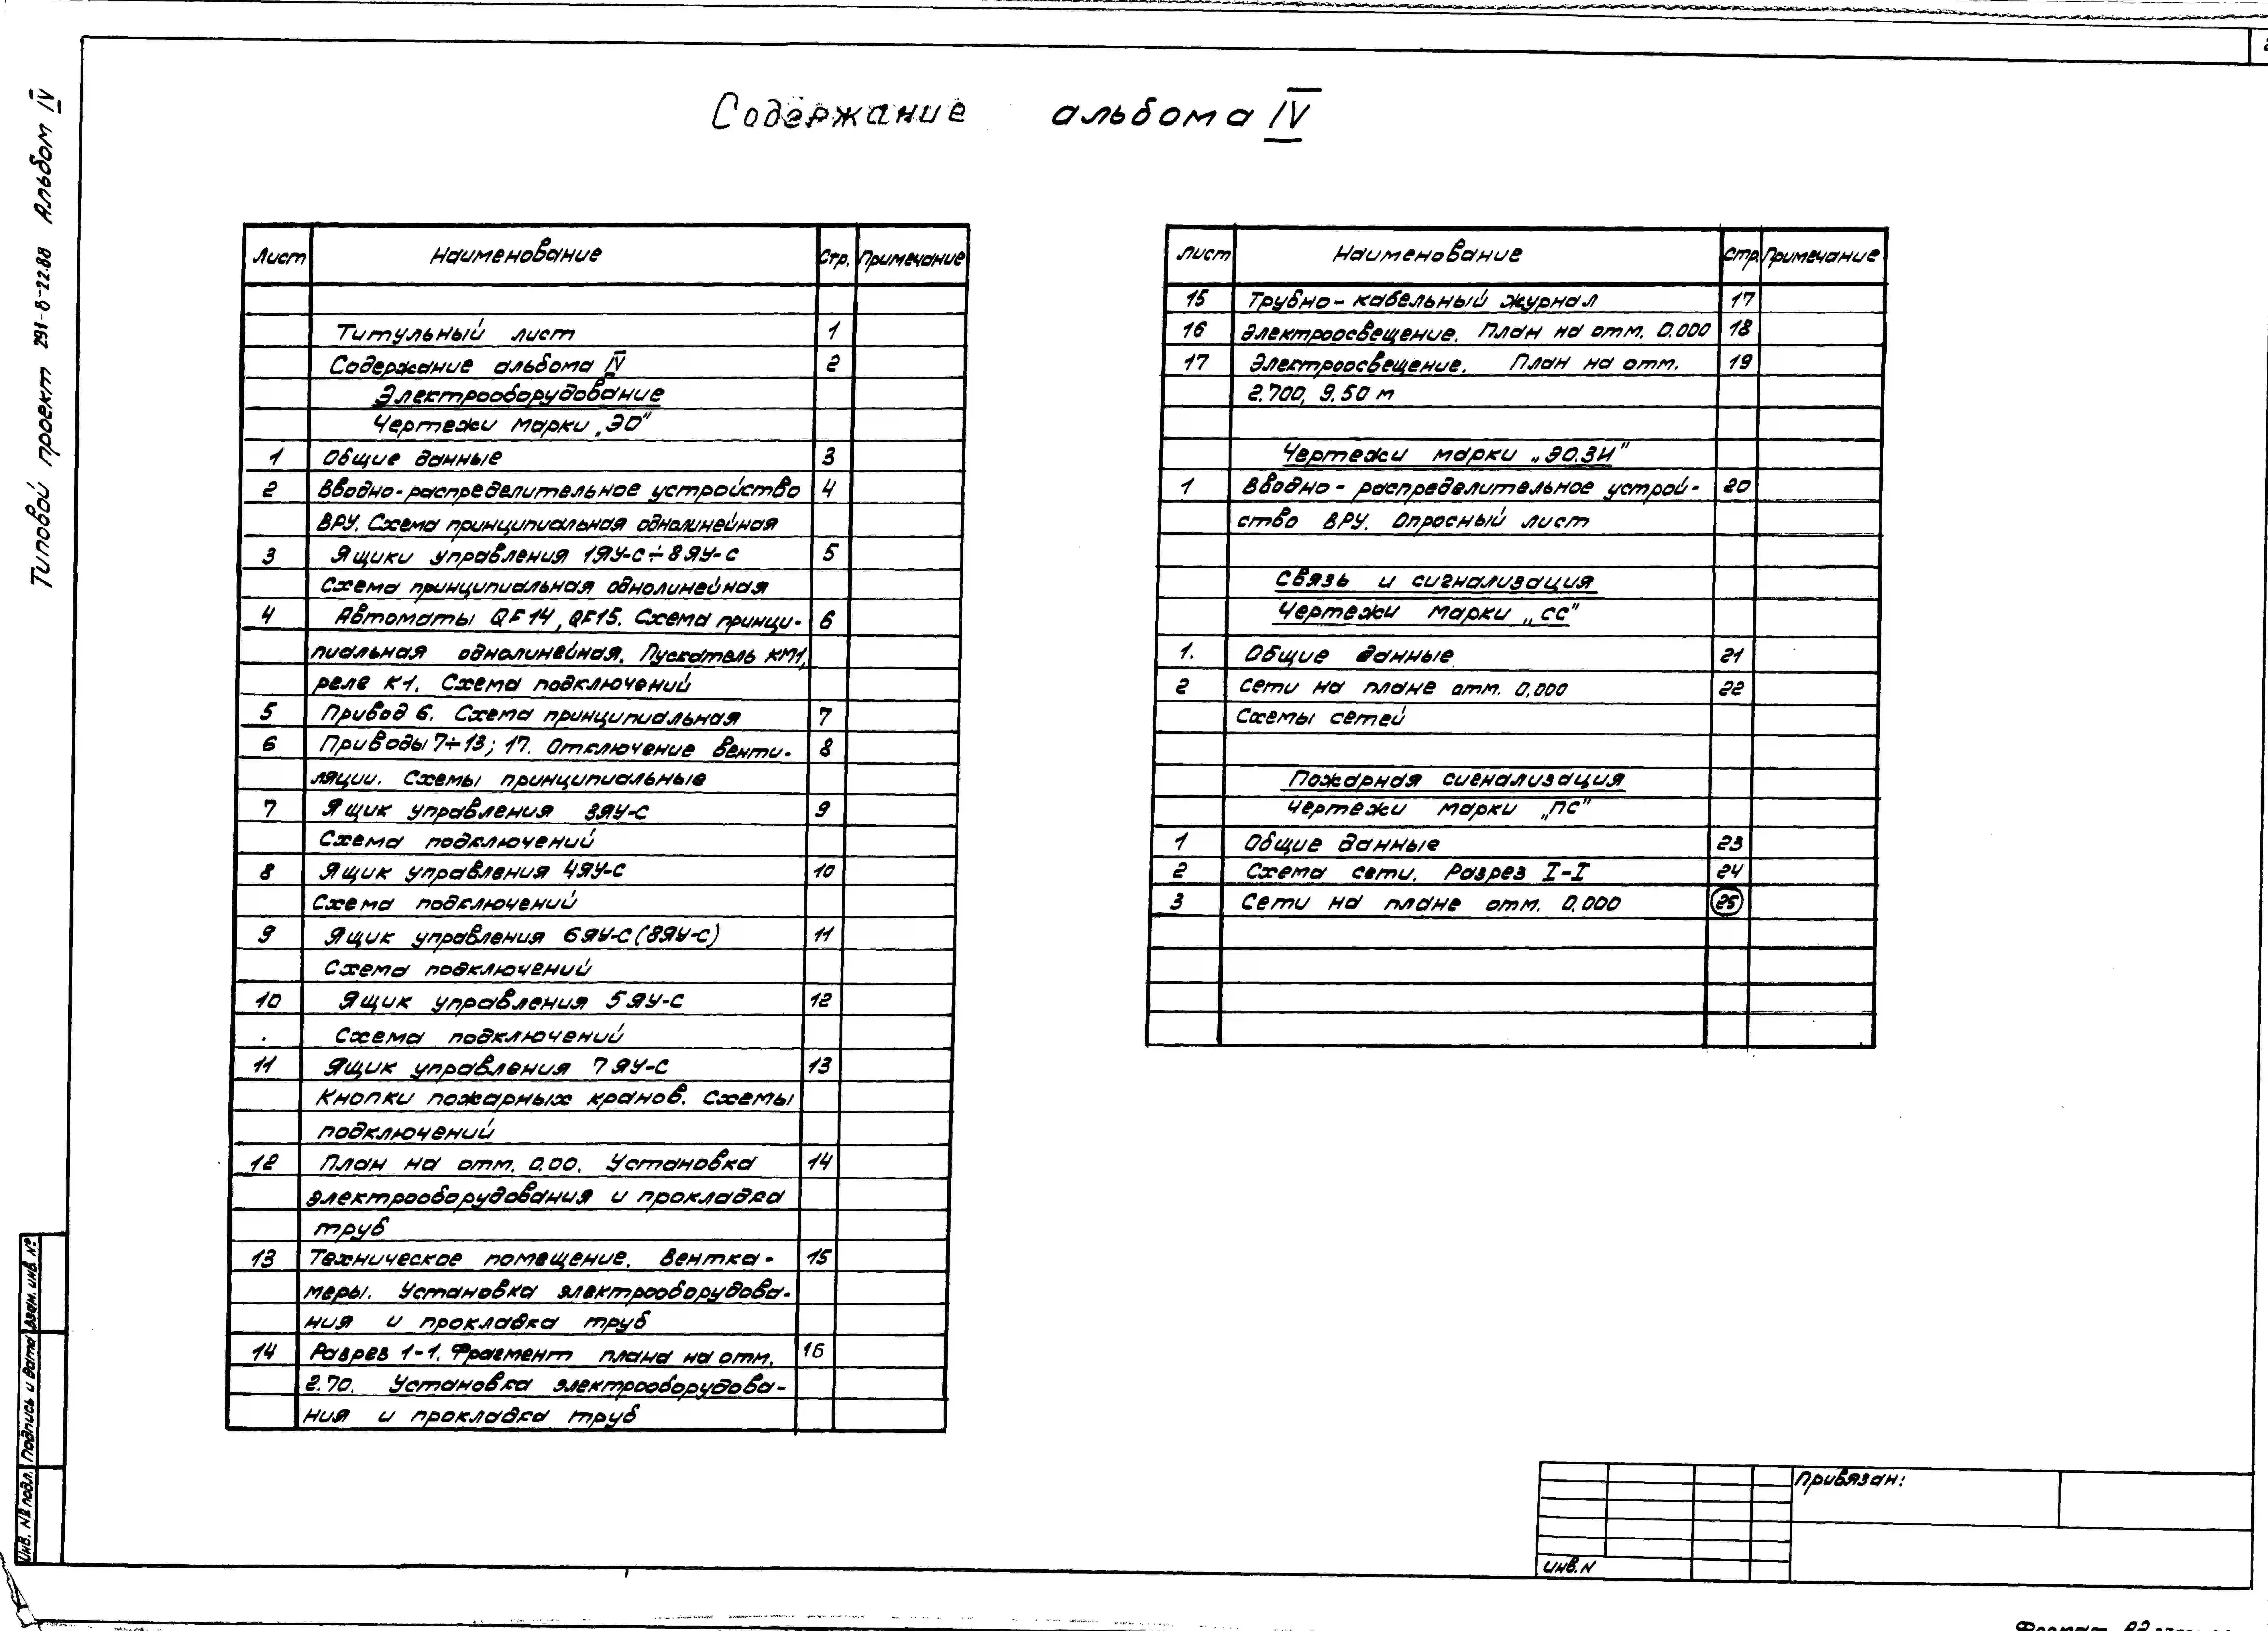 Содержание альбома IV
Типовой проект 291-8-22.88 Альбом IV
Лист Наименование Стр. Примечание
Титульный лист 1
Содержание альбома IV 2
Электрооборудование
Чертежи марки „ЭО"
1 Общие данные 3
2 Вводно-распределительное устройство 4
ВРУ. Схема принципиальная однолинейная
3 Ящики управления 1ЯУ-С÷8ЯУ-С 5
Схема принципиальная однолинейная
4 Автоматы QF14, QF15. Схема принци- 6
пиальная однолинейная. Пускатель КМ1,
реле К1. Схема подключений
5 Привод 6. Схема принципиальная 7
6 Приводы 7÷13; 17. Отключение венти- 8
ляции. Схемы принципиальные
7 Ящик управления 3ЯУ-С 9
Схема подключений
8 Ящик управления 4ЯУ-С 10
Схема подключений
9 Ящик управления 6ЯУ-С (8ЯУ-С) 11
Схема подключений
10 Ящик управления 5ЯУ-С 12
Схема подключений
11 Ящик управления 7ЯУ-С 13
Кнопки пожарных кранов. Схемы
подключений
12 План на отм. 0.00. Установка 14
электрооборудования и прокладка
труб
13 Техническое помещение. Вентка- 15
меры. Установка электрооборудова-
ния и прокладка труб
14 Разрез 1-1. Фрагмент плана на отм. 16
2.70. Установка электрооборудова-
ния и прокладка труб
Лист Наименование Стр. Примечание
15 Трубно-кабельный журнал 17
16 Электроосвещение. План на отм. 0.000 18
17 Электроосвещение. План на отм. 19
2.700, 9.50 м
Чертежи марки „ЭО.ЗИ"
1 Вводно-распределительное устрой- 20
ство ВРУ. Опросный лист
Связь и сигнализация
Чертежи марки „СС"
1. Общие данные 21
2 Сети на плане отм. 0.000 22
Схемы сетей
Пожарная сигнализация
Чертежи марки „ПС"
1 Общие данные 23
2 Схема сети. Разрез I-I 24
3 Сети на плане отм. 0.000 25
Привязан:
Инв.N
Инв. № подл. Подпись и дата Взам. инв. №